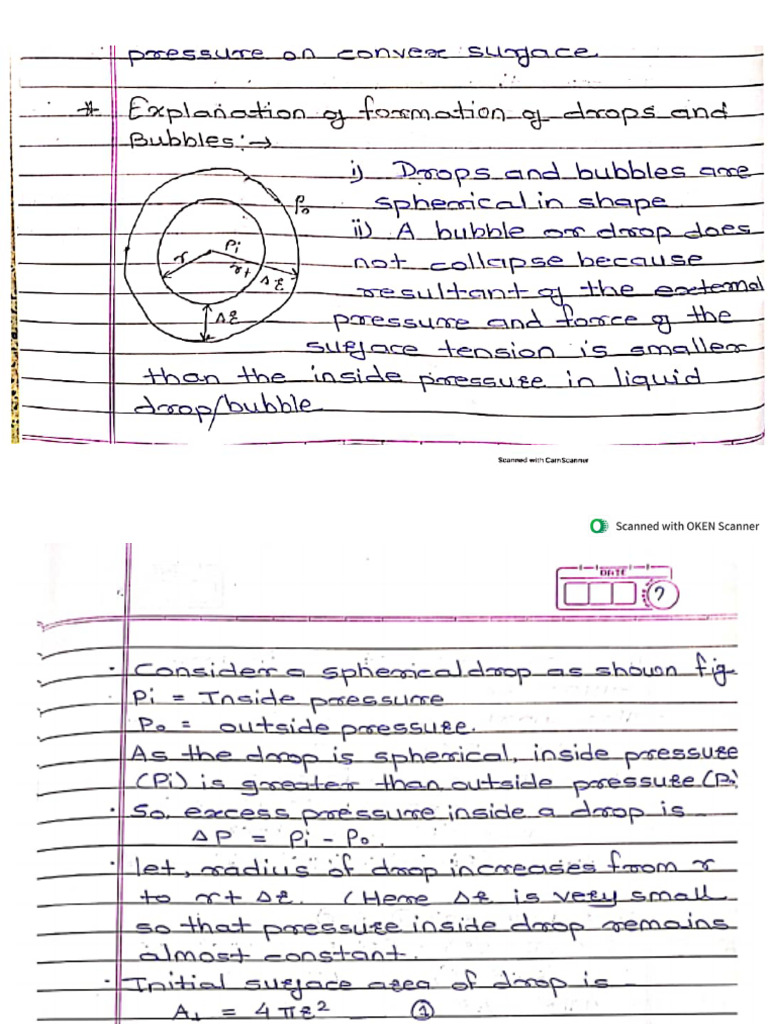 pressure on convex surface
* Explanation of formation of drops and
Bubbles:→
i) Drops and bubbles are
spherical in shape
ii) A bubble or drop does
not collapse because
resultant of the external
pressure and force of the
surface tension is smaller
than the inside pressure in liquid
drop/bubble
Po
Pi
r
r+Δr
Δr
Scanned with CamScanner
Scanned with OKEN Scanner
DATE
· Consider a spherical drop as shown fig
Pi = Inside pressure
Po = outside pressure.
As the drop is spherical, inside pressure
(Pi) is greater than outside pressure (Po)
· So, excess pressure inside a drop is
ΔP = Pi - Po.
· let, radius of drop increases from r
to r+Δr. (Here Δr is very small
so that pressure inside drop remains
almost constant.
· Initial surface area of drop is
A1 = 4πr² ①